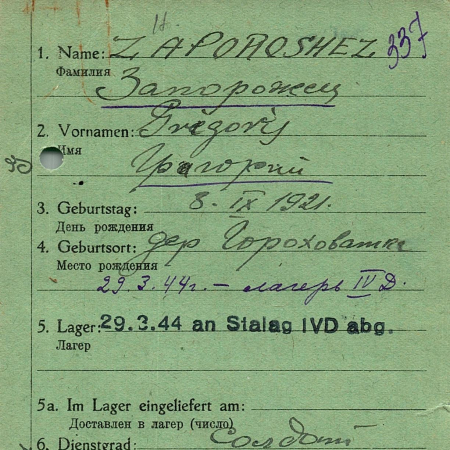 H.
337
1. Name: ZAPOROSHEZ
Фамилия Запорожец
2. Vornamen: Grigorij
Имя Григорий
3. Geburtstag: 8. IX 1921.
День рождения
4. Geburtsort: дер Гороховатка
Место рождения
29.3.44г. – лагерь IV D.
5. Lager: 29.3.44 an Stalag IVD abg.
Лагер
5a. Im Lager eingeliefert am:
Доставлен в лагер (число)
6. Dienstgrad: Солдат